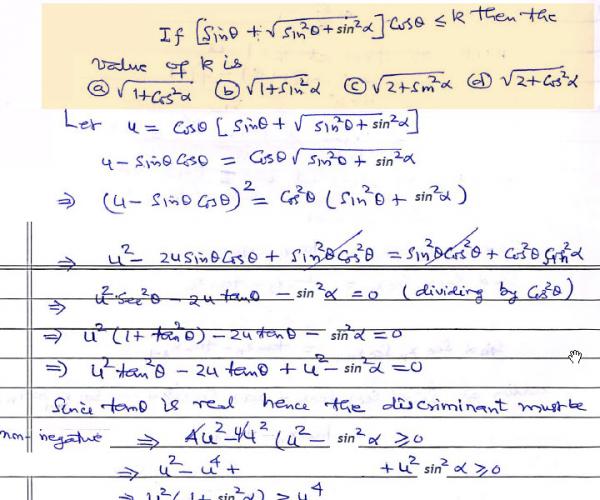 If [Sinθ + √(Sin²θ + sin²α)] Cosθ ≤ k then the
value of k is
ⓐ √(1+Cos²α) ⓑ √(1+Sin²α) ⓒ √(2+Sin²α) ⓓ √(2+Cos²α)
Let u = Cosθ [Sinθ + √(Sin²θ + sin²α)]
u - Sinθ Cosθ = Cosθ √(Sin²θ + sin²α)
⇒ (u - Sinθ Cosθ)² = Cos²θ (Sin²θ + sin²α)
⇒ u² - 2uSinθCosθ + Sin²θCos²θ = Sin²θCos²θ + Cos²θ Sin²α
⇒ u²Sec²θ - 2u tanθ - sin²α = 0 (dividing by Cos²θ)
⇒ u²(1 + tan²θ) - 2u tanθ - sin²α = 0
⇒ u² tan²θ - 2u tanθ + u² - sin²α = 0
Since tanθ is real hence the discriminant must be
non-negative ⇒ 4u² - 4u² (u² - sin²α ≥ 0
⇒ u² - u⁴ + + u² sin²α ≥ 0
⇒ u² (1 + sin²α) ≥ u⁴